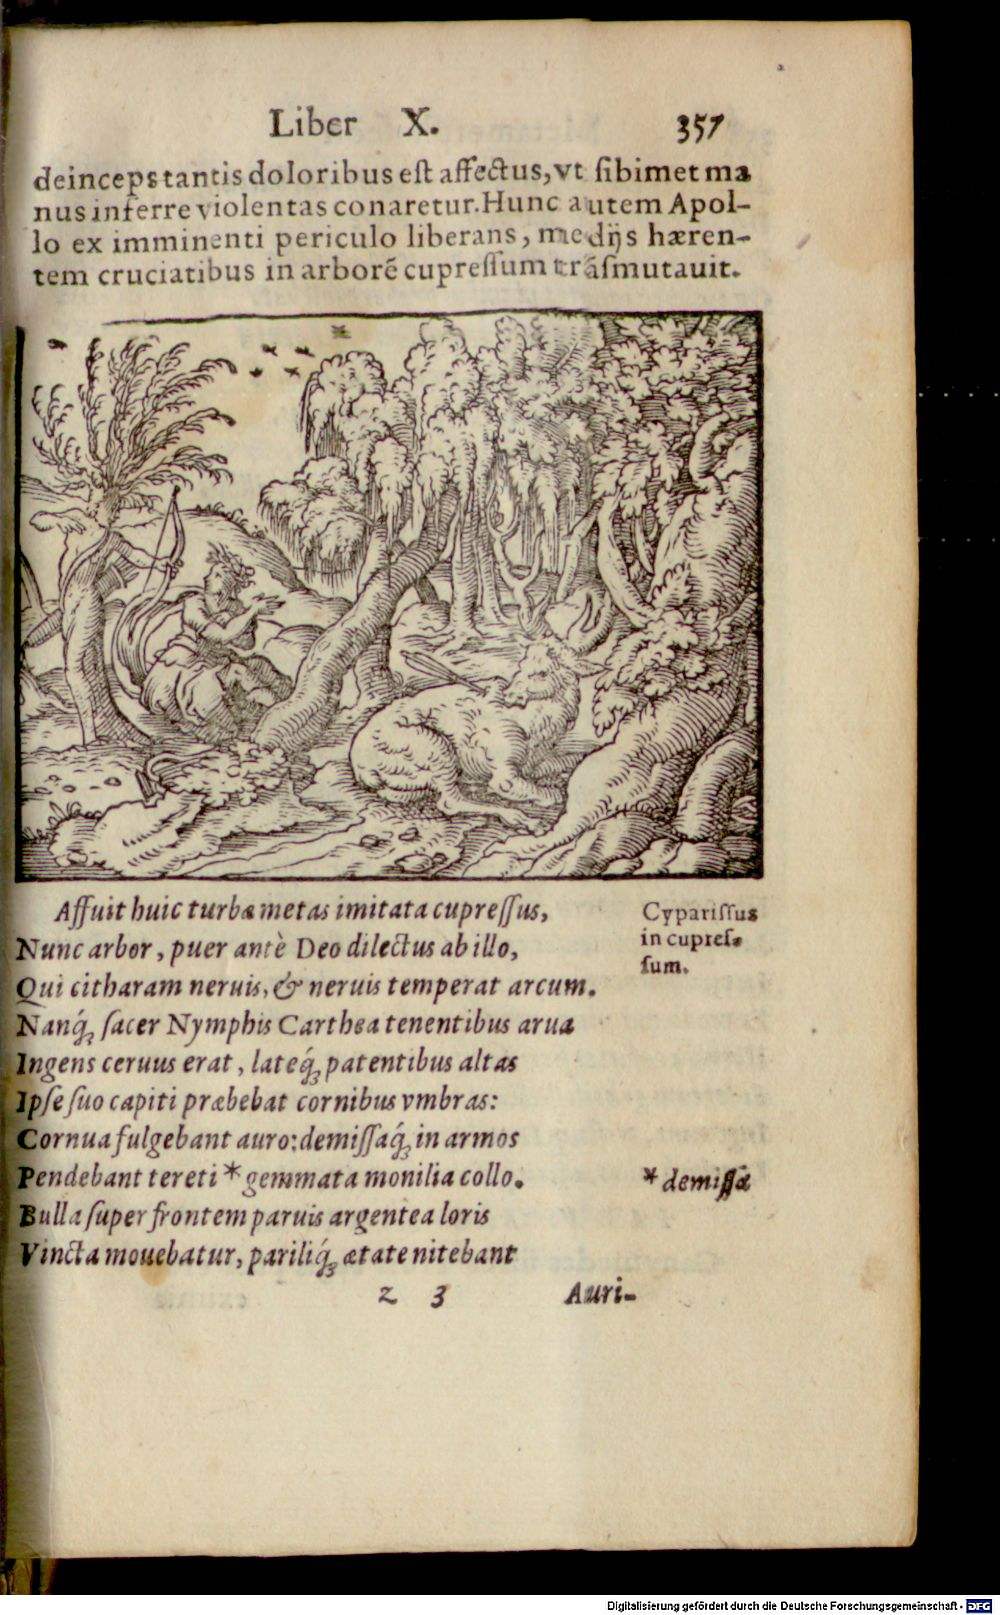 Liber X. 357
deinceps tantis doloribus eſt affectus, vt ſibimet ma
nus inferre violentas conaretur. Hunc autem Apol-
lo ex imminenti periculo liberans, medijs hæren-
tem cruciatibus in arborē cupreſſum trāſmutauit.
Affuit huic turbæ metas imitata cupreſſus,
Nunc arbor, puer antè Deo dilectus ab illo,
Qui citharam neruis, & neruis temperat arcum.
Nanq́ꝫ ſacer Nymphis Carthea tenentibus arua
Ingens ceruus erat, lateq́ꝫ patentibus altas
Ipſe ſuo capiti præbebat cornibus vmbras:
Cornua fulgebant auro: demiſſaq́ꝫ in armos
Pendebant tereti * gemmata monilia collo.
Bulla ſuper frontem paruis argentea loris
Vincta mouebatur, pariliq́ꝫ ætate nitebant
Cypariſſus
in cupreſ-
ſum.
* demiſſa
z 3 Auri-
Digitalisierung gefördert durch die Deutsche Forschungsgemeinschaft - DFG